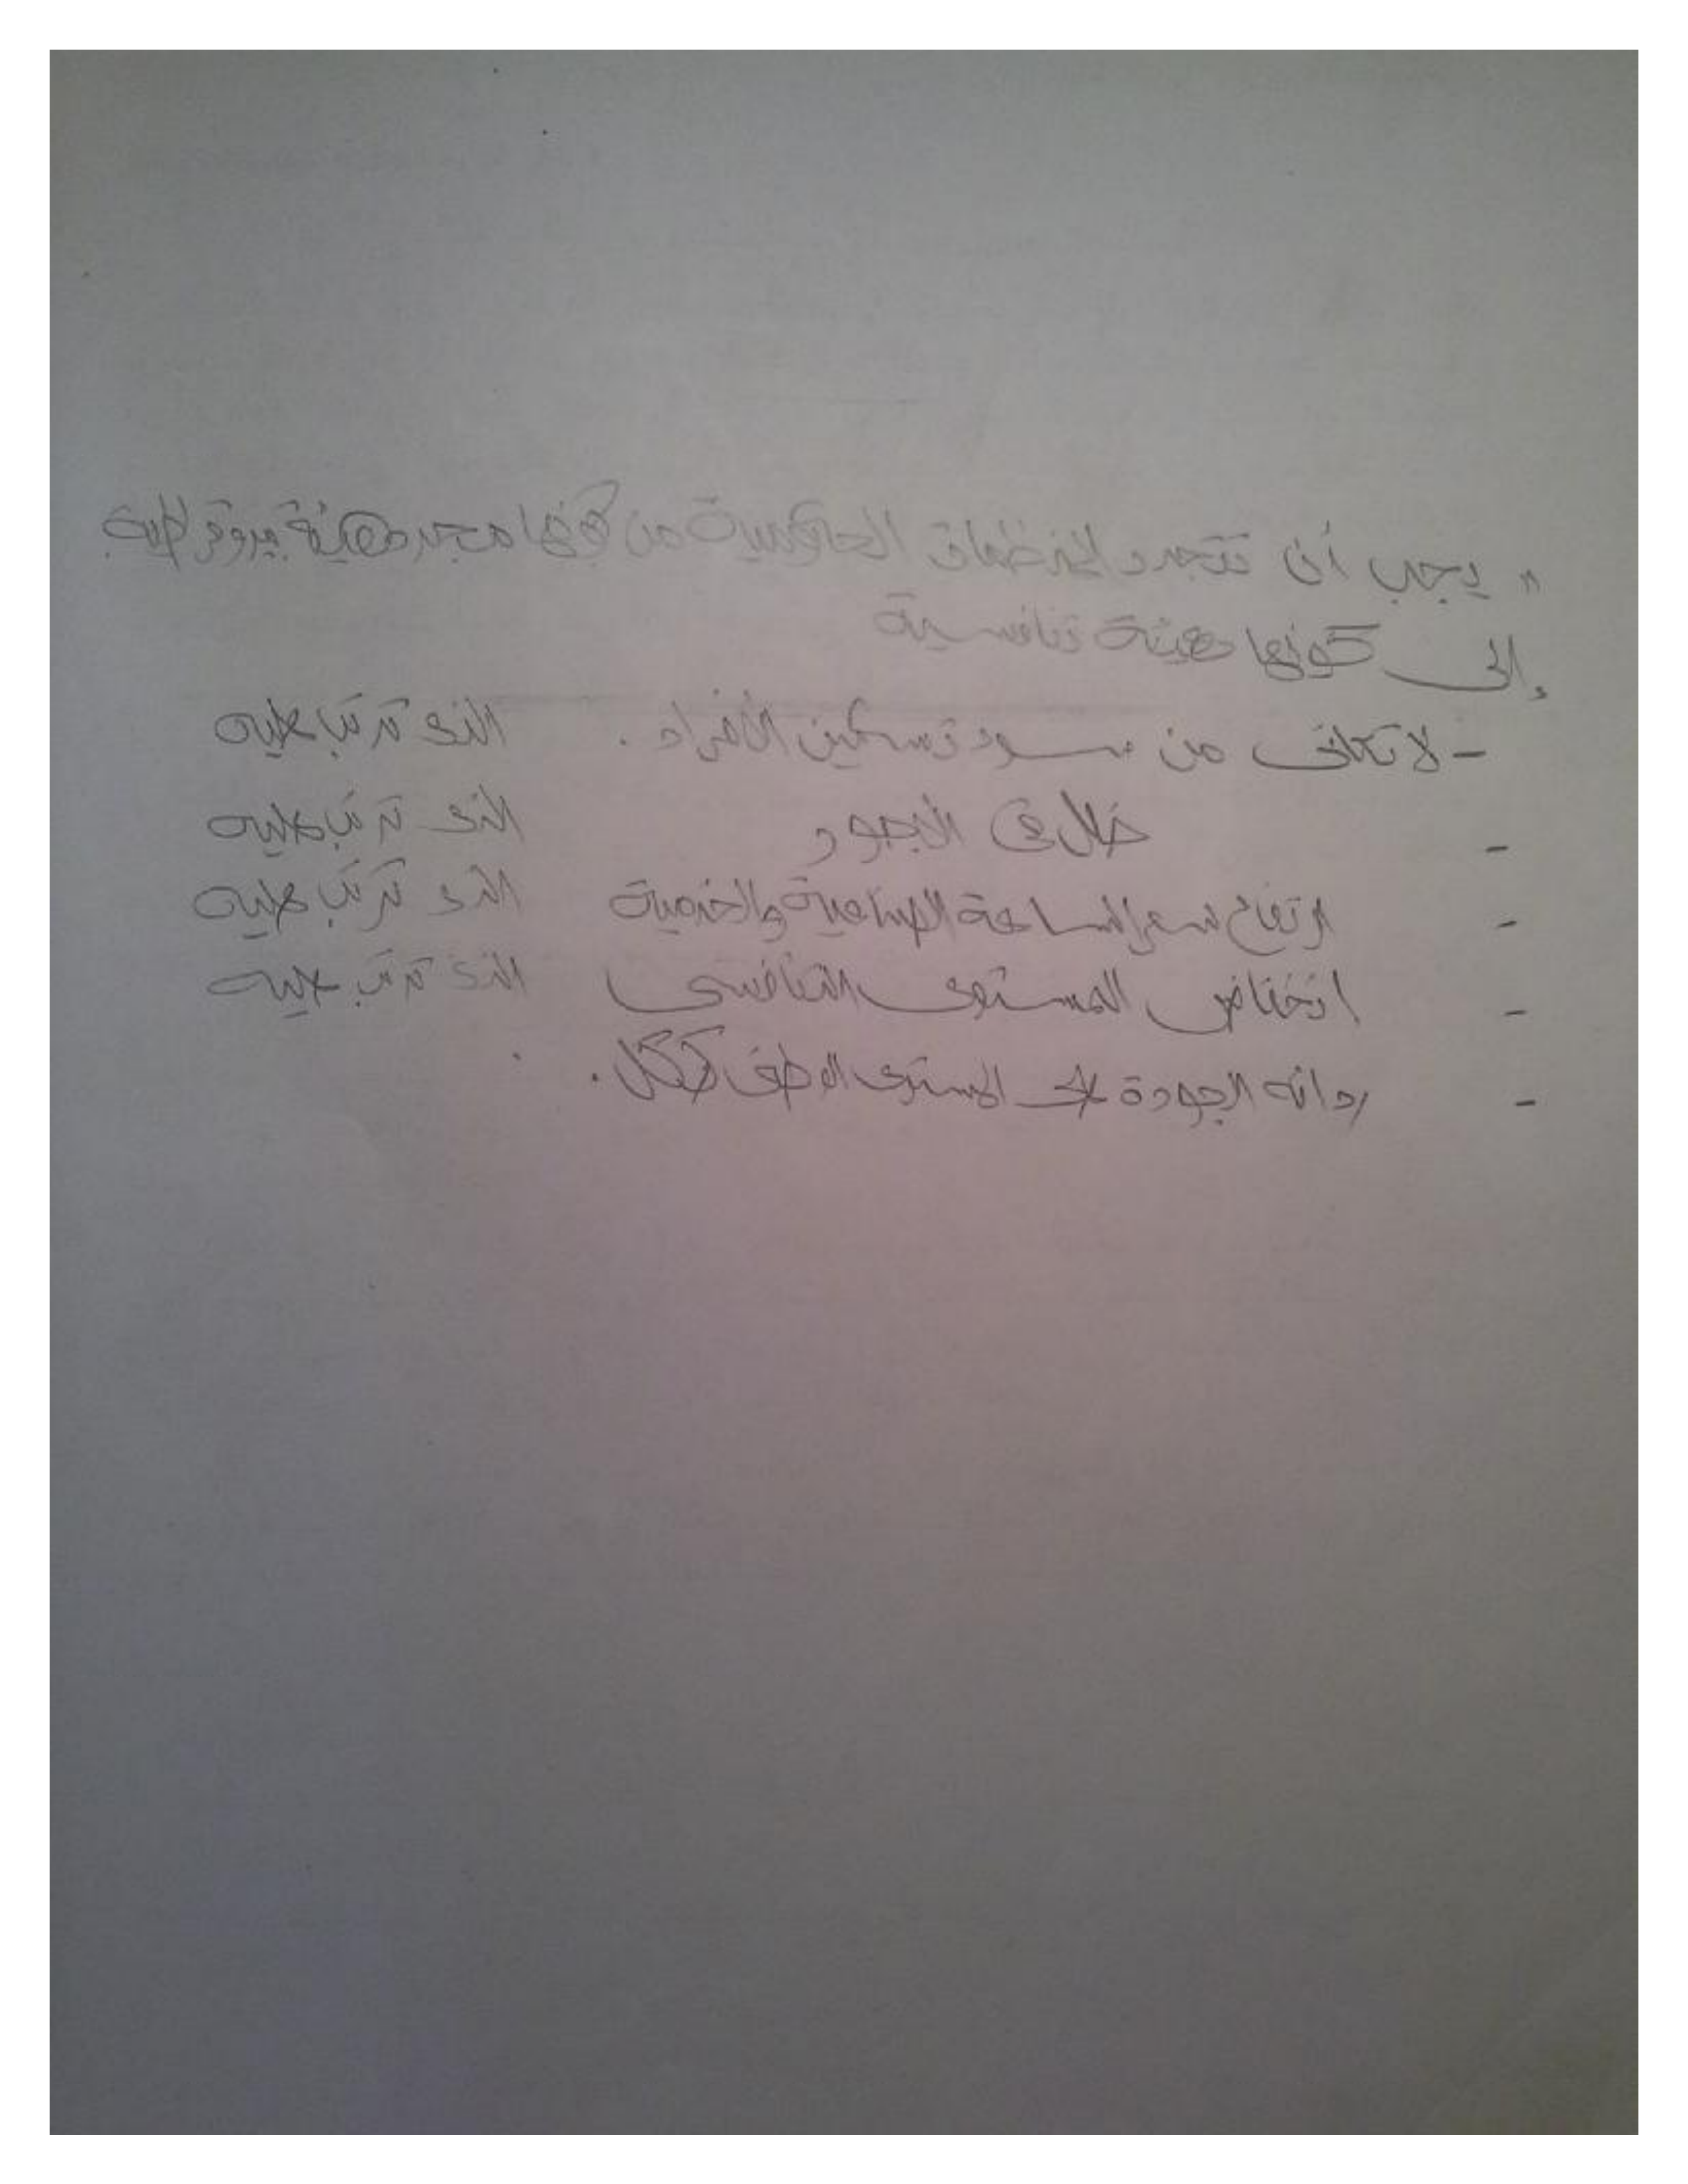 " يجب أن تتجرد المنظمات الحكومية من كونها مجرد هيئة بيروقراطية
إلى كونها هيئة تنافسية
- لا تكافئ من سوء تسكين الأفراد . الذى ترتب عليه
- خلل فى الأجور الذى ترتب عليه
- ارتفاع سعر الساعة الصناعية والخدمية الذى ترتب عليه
- انخفاض المستوى التنافسى الذى ترتب عليه
- ردائه الجودة على المستوى الوطنى ككل .